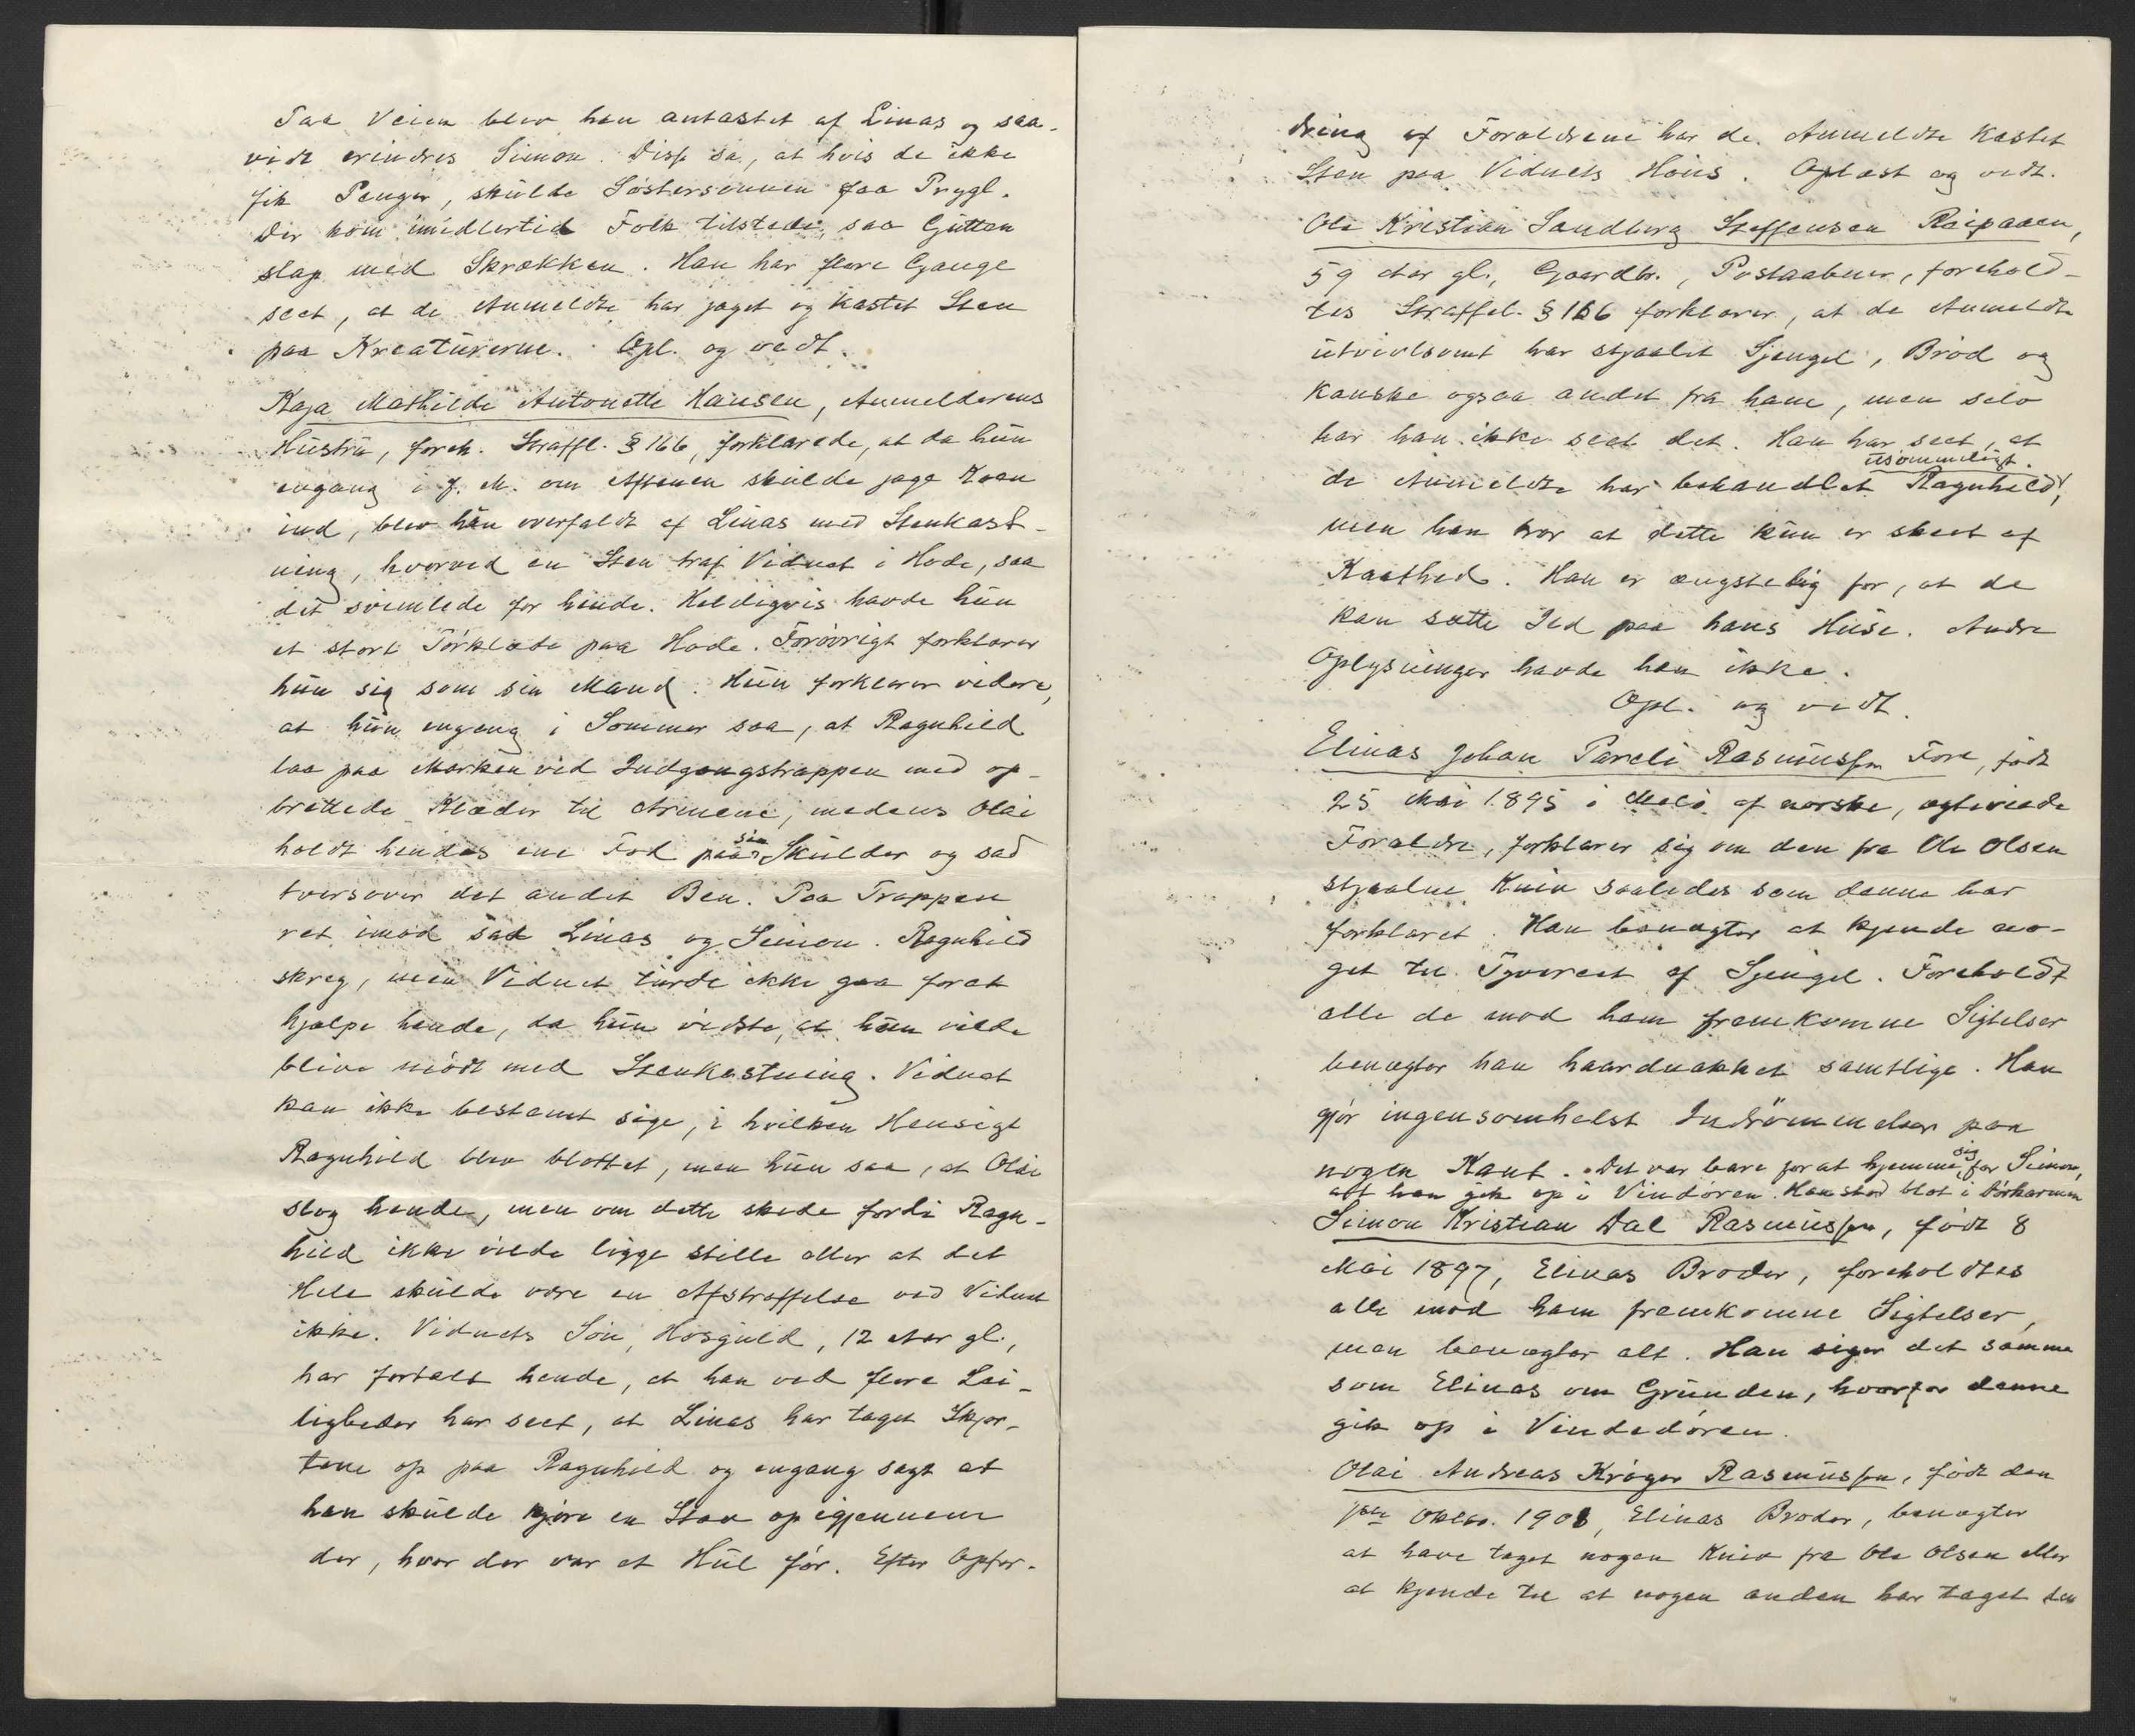 Paa Veien blev han antastet af Linas og saa-
vidt erindres Simon. Disse sa, at hvis de ikke
fik Penger, skulde Søstersønnen faa Prygl.
Der kom imidlertid Folk tilstede, saa Gutten
slap med Skrækken. Han har flere Gange
seet, at de Anmeldte har jaget og kastet Sten
paa Kreaturerne. Opl. og vedt.
Kaja Mathilde Antonette Hansen, Anmelderens
Hustru, foreh. Straffl. § 166, forklarede, at da hun
engang i f. M. om Aftenen skulde jage Koen
ind, blev hun overfaldt af Linas med Stenkast-
ning, hvorved en Sten traf Vidnet i Hode, saa
det svimlede for hende. Heldigvis havde hun
et stort Tørklæde paa Hode. Forøvrigt forklarer
hun sig som sin Mand. Hun forklarer videre,
at hun engang i Sommer saa, at Ragnhild
laa paa Marken ved Indgangstrappen med op-
brettede Klæder til Armene, medens Olai
holdt hendes ene Fod paa sin Skulder og sad
tversover det andet Ben. Paa Trappen
ret imod sad Linas og Simon. Ragnhild
skreg, men Vidnet turde ikke gaa forat
hjælpe hende, da hun vidste, at hun vilde
blive mødt med Stenkastning. Vidnet
kan ikke bestemt sige, i hvilken Hensigt
Ragnhild blev blottet, men hun saa, at Olai
slog hende, men om dette skede fordi Ragn-
hild ikke vilde ligge stille eller at det
Hele skulde være en Afstraffelse ved Vidnet
ikke. Vidnets Søn, 12 Aar gl.,
har fortalt hende, at han ved flere Lei-
ligheder har seet, at Linas har taget Skjør-
tene op paa Ragnhild og engang sagt at
han skulde kjøre en Stav op igjennem
der, hvor der var et Hul før. Efter Opfor-
dring af Forældrene har de Anmeldte kastet
Sten paa Vidnets Høns. Oplæst og vedt.
Ole Kristian Sandberg Steffensen Reipaaen,
59 Aar gl., Gaardbr., Postaabner, forehold-
tes Straffel. § 166 forklarer, at de Anmeldte
utvivlsomt har stjaalet Sjengel, Brød og
kanske ogsaa andet fra ham, men selv
har han ikke seet det. Han har seet, at
de Anmeldte har behandlet Ragnhild usømmeligt,
men han tror at dette kun er skeet af
Kaathed. Han er ængstelig for, at de
kan sætte Ild paa hans Huse. Andre
Oplysninger havde han ikke.
Opl. og vedt.
Elinas Johan Pareli Rasmussen Fore, født
25 Mai 1895 i Melø af norske, ægteviede
Forældre, forklarer sig om den fra Ole Olsen
stjaalne Kniv saaledes som denne har
forklaret. Han benægter at kjende no-
get til Tyveriet af Sjengel. Foreholdt
alle de mod ham fremkomne Sigtelser
benægter han haardnakket samtlige. Han
gjør ingensomhelst Indrømmelser paa
nogen Kant. Det var bare for at gjemme sig for Simon,
att han gik op i Vindøren. Han stod blot i Dørkarmen
Simon Kristian Dal Rasmussen, født 8
Mai 1897, Elinas Broder, foreholdtes
alle mod ham fremkomne Sigtelser,
men benægter alt. Han siger det samme
som Elinas om Grunden, hvorfor denne
gik op i Vindedøren.
Olai Andreas Krøger Rasmussen, født den
Oktbr. 1901, Elinas Broder, benægter
at have taget nogen Kniv fra Ole Olsen eller
at kjende til at nogen anden har taget den